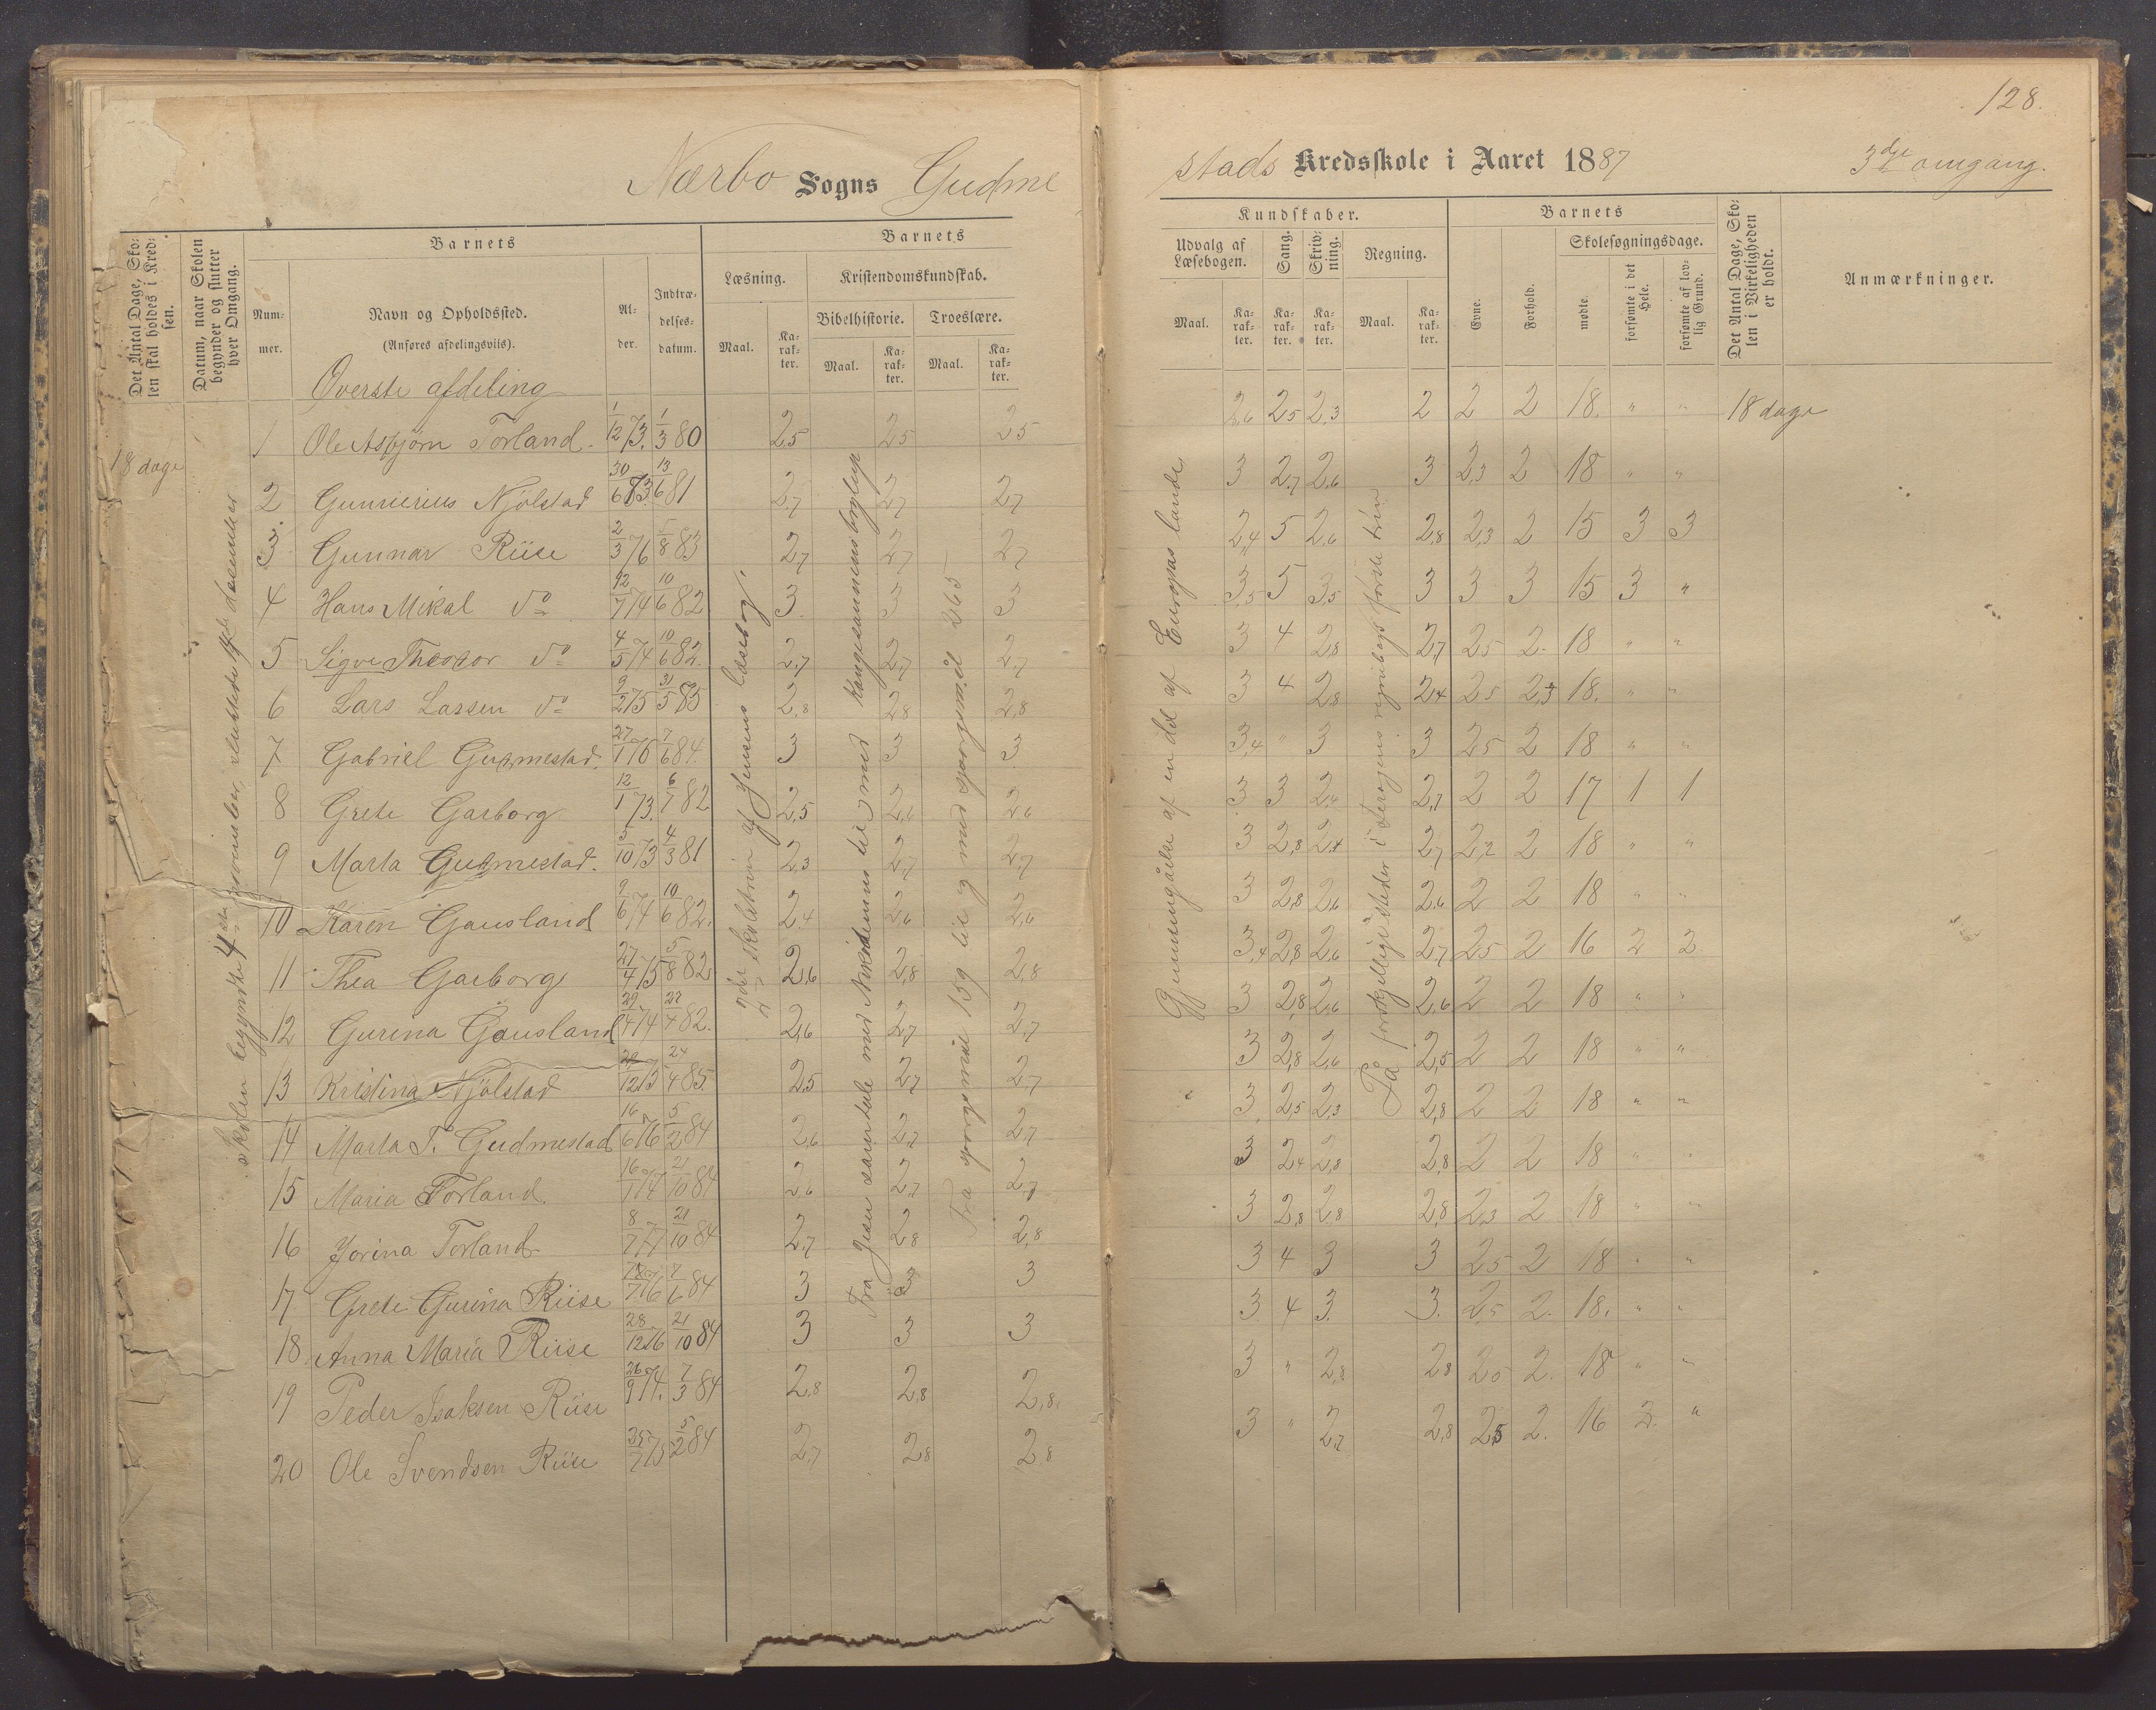 128.
Nærbo Sogns Gudme
stads Kredsskole i Aaret 1887
3die omgang.
Det Antal Dage, Sko-
len skal holdes i Kred-
sen.
Datum, naar Skolen
begynder og slutter
hver Omgang.
Barnets
Num-
mer.
Navn og Opholdssted.
(Anføres afdelingsviis).
Al-
der.
Indtræ-
delses-
datum.
Barnets
Læsning.
Kristendomskundskab.
Bibelhistorie. Troeslære.
Maal. Ka-
rak-
ter.
Maal. Ka-
rak-
ter.
Maal. Ka-
rak-
ter.
Kundskaber.
Udvalg af
Læsebogen.
Sang.
Skriv-
ning.
Regning.
Maal. Ka-
rak-
ter.
Ka-
rak-
ter.
Ka-
rak-
ter.
Maal. Ka-
rak-
ter.
Barnets
Evne.
Forhold.
Skolesøgningsdage.
mødte.
forsømte i det
Hele.
forsømte af lov-
lig Grund.
Det Antal Dage, Sko-
len i Virkeligheden
er holdt.
Anmærkninger.
Øverste afdeling
18 dage
1 Ole Asbjørn Torland. 1/12 73. 1/3 80 2,5 2,5 2,5 2,6 2,5 2,3 2 2 2 18. " " 18 dage
2 Gunnerius Njølstad 30/6 73. 13/6 81 2,7 2,7 2,7 3 2,7 2,6 3 2,3 2 18 " "
3 Gunnar Riise 2/3 76 5/8 83 2,7 2,7 2,7 2,4 5 2,6 2,8 2,3 2 15 3 3
4 Hans Mikal do 12/7 74 10/6 82 3. 3 3 3,5 5 3,5 3 3 3 15 3 "
5 Sigve Theodor do 4/5 74 10/6 82. 2,7 2,7 2,7 3 4 2,8 2,7 2,5 2. 18 " "
6 Lars Lassen do 9/2 75 31/5 85 2,8 2,8 2,8 3 4 2,8 2,4 2,5 2,3 18. " "
7 Gabriel Gudmestad. 27/1 76 7/6 84. 3 3 3 3,4 " 3 3 2,5 2 18 " "
8 Grete Garborg 12/1 73. 6/7 82 2,5 2,6 2,6 3 3 2,4 2,7 2 2 17 1 1
9 Marta Gudmestad. 5/10 73 4/3 81 2,3 2,7 2,7 3 2,8 2,4 2,7 2,2 2 18 " "
10 Karen Gausland 9/6 74 10/6 82. 2,4 2,6 2,6 3 2,8 2,6 2,6 2 2 18 " "
11 Thea Garborg 27/4 75 5/8 82 2,6 2,8 2,8 3,4 2,8 2,6 2,7 2,5 2 16 2 2
12 Gurina Gausland 29/4 74 22/4 82. 2,6 2,7 2,7 3 2,8 2,6 2,6 2 2 18 " "
13 Kristina Njølstad 12 73 24/4 85. 2,5 2,7 2,7 3 2,8 2,6 2,5 2 2 18 " "
14 Marta T. Gudmestad 16/6 76 5/2 84 2,6 2,7 2,7 3 2,5 2,3 2,8 2 2 18 " "
15 Maria Torland. 16/1 74 21/10 84 2,6 2,7 2,7 3 2,4 2,8 2,8 2 2 18 " "
16 Jorina Torland. 8/7 77 21/10 84 2,7 2,8 2,8 3 2,8 2,8 2,8 2,3 2 18 " "
17 Grete Gurina Riise 18/7 76 7/6 84 3 3 3 3 4 3 3 2,5 2 18 " "
18 Anna Maria Riise 28/12 76 21/10 84 3 3 3 3 4 3. 3. 2,5 2. 18. " "
19 Peder Isaksen Riise 26/9 74. 7/3 84 2,8 2,8 2,8. 3 " 2,8 2,8 2,5 2. 18 " "
20 Ole Svendsen Riise 75 5/2 84 2,7 2,8 2,8 3 " 2,7 2,8 2,5 2. 16 2. "
Skolen begyndte 4de november, sluttede december
2det skoletrin af Jensens læsebog.
Fra Jesu samtale med Nikodemus til med
Fra spørgsmål 159 til og med spørgsmål 265
Gjennemgåelse af en del af Europas lande
På forskjellige steder i regnebogs første trin